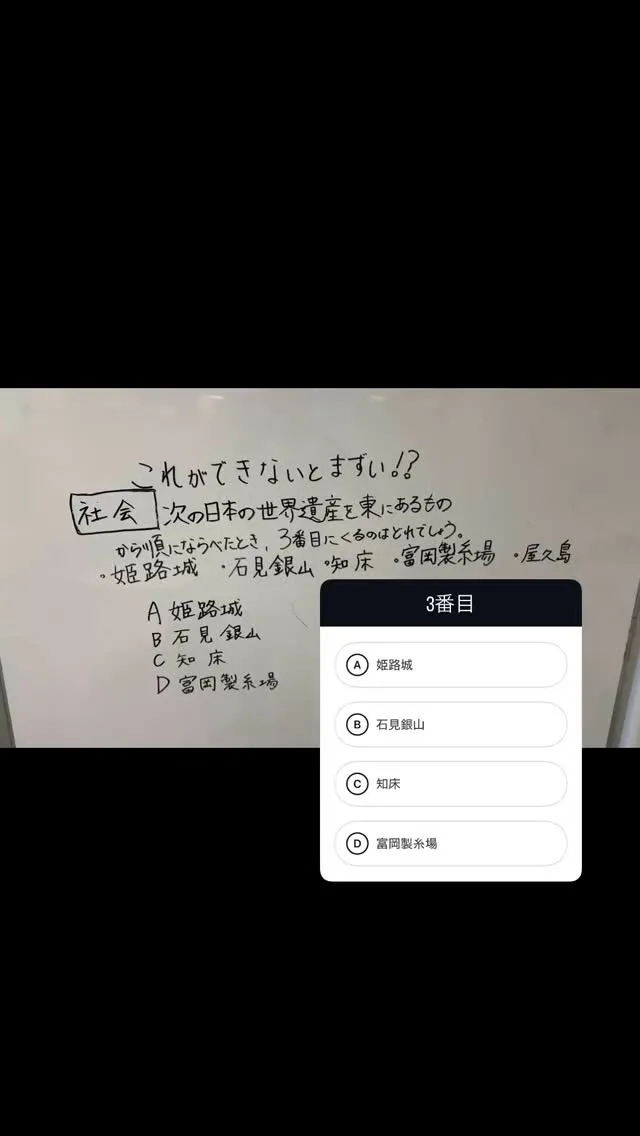 これができないとまずい!?
社会 次の日本の世界遺産を東にあるもの
から順にならべたとき、3番目にくるのはどれでしょう。
・姫路城 ・石見銀山 ・知床 ・富岡製糸場 ・屋久島
A 姫路城
B 石見銀山
C 知床
D 富岡製糸場
3番目
A 姫路城
B 石見銀山
C 知床
D 富岡製糸場